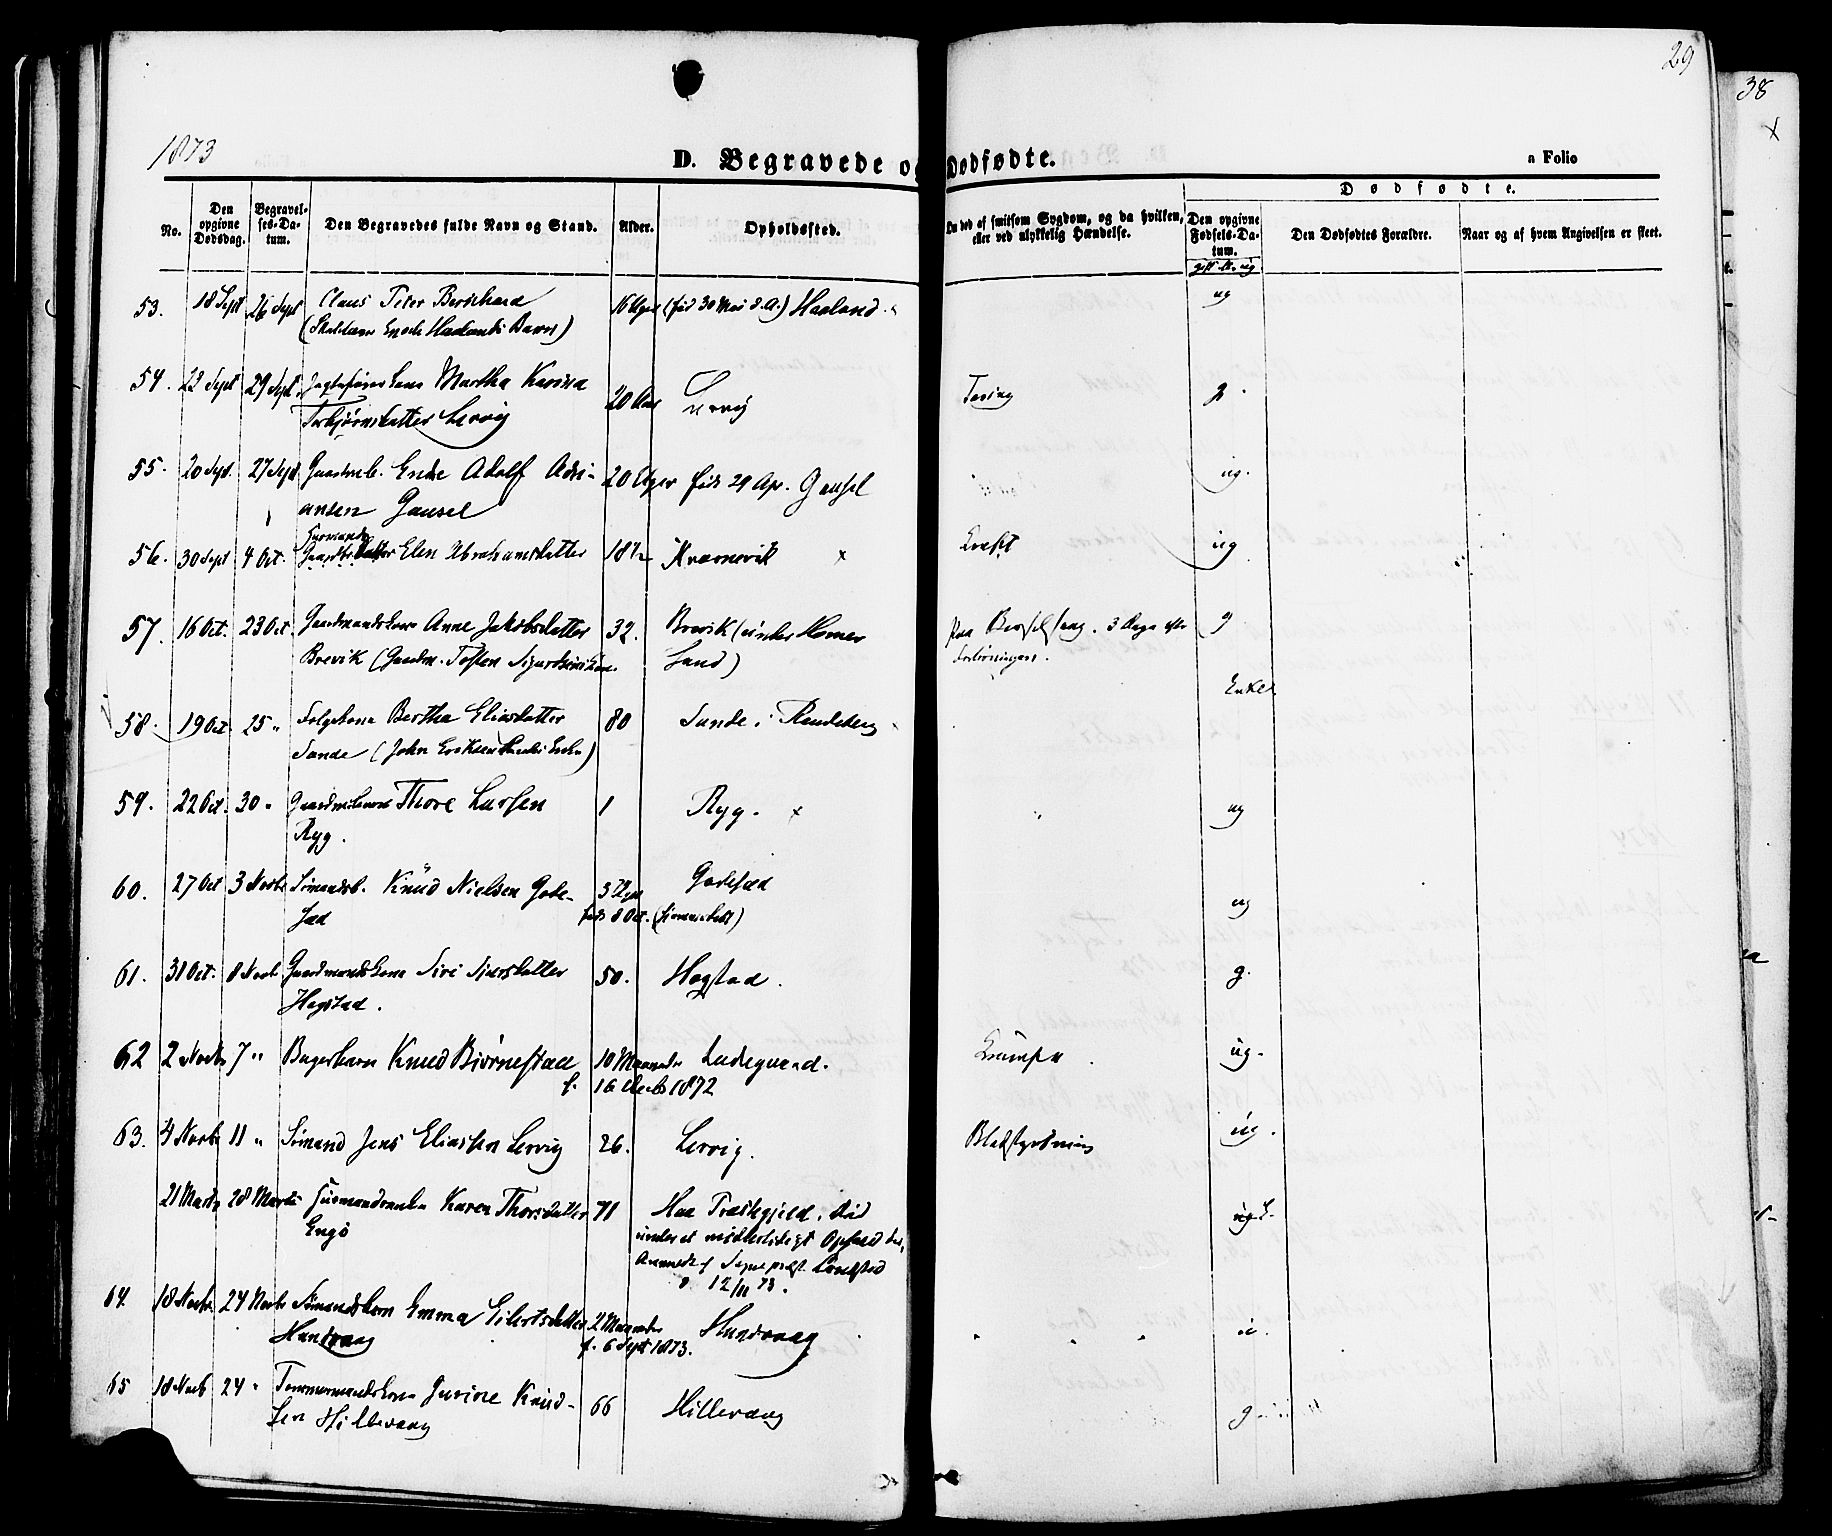 29
38
1873
D. Begravede og Dødfødte.
a Folio
No.
Den opgivne Dødsdag.
Begravelses-Datum.
Den Begravedes fulde Navn og Stand.
Alder.
Opholdssted.
En død af smitsom Sygdom, og da hvilken, eller ved ulykkelig Hændelse.
Dødfødte.
Den opgivne Fødsels-Datum.
Den Dødfødtes Forældre.
Naar og af hvem Angivelsen er skeet.
53. 18 Sept 26 Sept Claus Peter Berichard 16 Uger (fød 30 Mai d.A.) Haaland ug
( Enok Haalands Barn)
54. 22 Sept 29 Sept Martha Karina 20 Aar Lervig Tæring g
Torbjørnsdatter Lervig
55. 20 Sept. 27 Sept. Gaardmb. Endre Adolf Adri- 20 Uger født 29 Ap. Gausel ug.
ansen Gausel
Huusmands
56. 30 Sept 4 Oct. Elen Abrahamsdatter 18 1/2 Kvernevik x Kræft ug
57. 16 Oct. 23 Oct. Gaardmandskone Anne Jakobsdatter 32. Brevik (under Homer paa Barselseng. 3 Dage efter g
Brevik (Gaardm. Tosten Sjurdsens Kone Sand) Forløsningen.
58. 19 Oct. 25 " Følgekone Bertha Eliasdatter 80 Sunde i Randeberg Enke
Sunde (John Eriksen Sundes Enke)
59. 22 Oct. 30 " Thore Larsen 1 Ryg. x ug
Ryg.
60. 27 Oct 3 Novbr Sømandsb. Knud Nielsen Gode- 3 Uger Godesæd ug
sæd født 8 Oct.
61. 31 Oct. 8 Novb Gaardmandskone Siri Sjursdatter 50. Hogstad. g.
Hogstad.
62 2 Novbr 7 " Bagerbarn Knud Bjørnestad 10 Maaneder Ladegaard. Krampe. ug.
f. 16 Decb 1872
63. 4 Novbr 11 " Sømand Jens Eliassen Lervig 26. Lervig. Blodstyrtning ug.
21 Marts 28 Marts Huusmandsenke Karen Thorsdatter 71 Haa Præstegjeld. død
Engø under et midlertidigt Ophold der,
Anmeldt af Sognepræst
d. 12/11 73.
64. 18 Novbr. 24 Novbr Sømandsbarn Emma Eilertsdatter 2 Maaneder Hundvaag u.
Hundvaag f. 6 Sept 1873.
65 18 Novb 24 " Tømmermandskone Gurine Knud- 66 Hillevaag g
sen Hillevaag